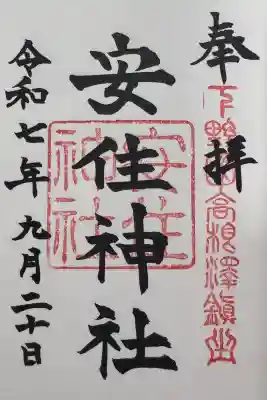 奉拝
下野国高根澤鎮守
安住神社
安住神社
令和七年九月二十日